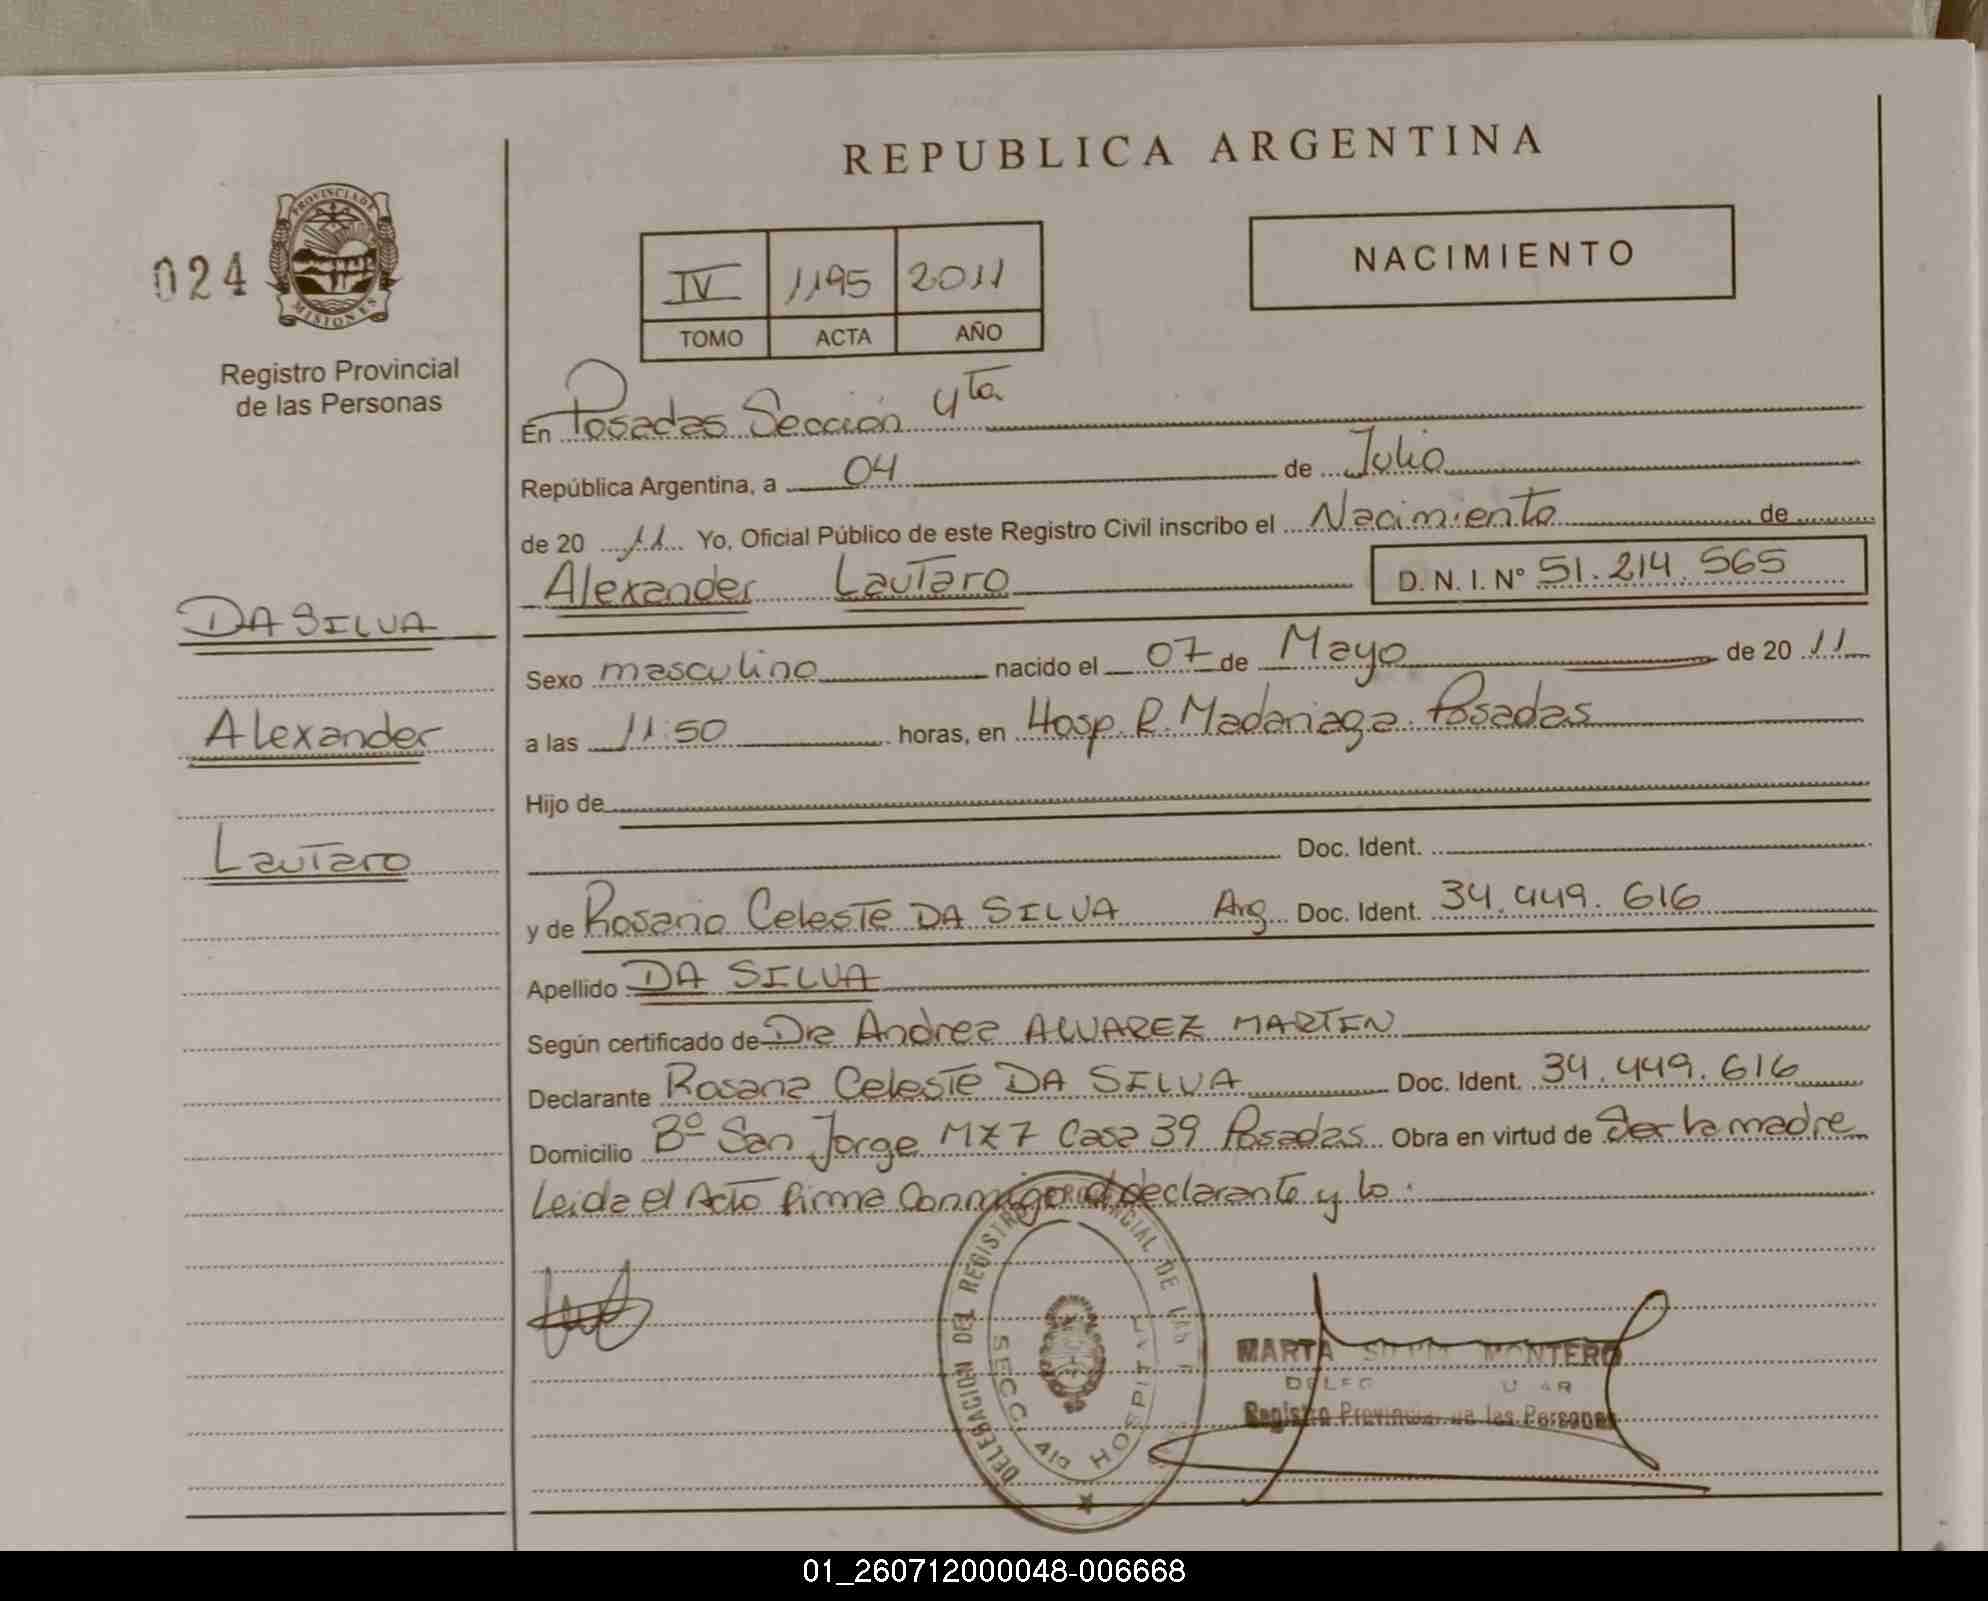 REPUBLICA ARGENTINA
024
PROVINCIA DE
MISIONES
Registro Provincial
de las Personas
IV 1195 2011
TOMO ACTA AÑO
NACIMIENTO
En Posadas Sección 4ta
República Argentina, a 04 de Julio
de 20 11 Yo, Oficial Público de este Registro Civil inscribo el Nacimiento de
Alexander Lautaro D. N. I. N° 51.214.565
DA SILVA
Alexander
Lautaro
Sexo masculino nacido el 07 de Mayo de 20 11
a las 11:50 horas, en Hosp. R. Madariaga. Posadas
Hijo de
Doc. Ident.
y de Rosana Celeste DA SILVA Arg. Doc. Ident. 34.449.616
Apellido DA SILVA
Según certificado de Dra Andrea ALVAREZ MARTIN
Declarante Rosana Celeste DA SILVA Doc. Ident. 34.449.616
Domicilio B° San Jorge MZ 7 Casa 39 Posadas Obra en virtud de Ser la madre
Leida el Acto firma Conmigo el declarante y lo.
DELEGACION DEL REGISTRO PROVINCIAL DE LAS
SECC. 4ta HOSPITAL
MARTA MONTERO
Registro Provincial de las Personas
01_260712000048-006668